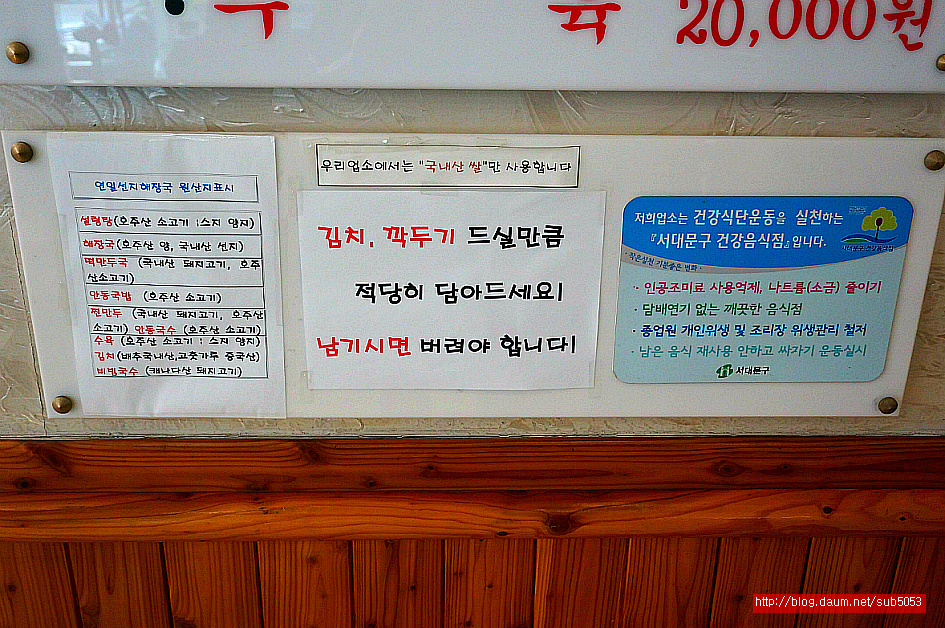 수 육 20,000원
우리업소에서는 "국내산 쌀"만 사용합니다
연밀선지해장국 원산지표시
설렁탕(호주산 소고기 :스지 양지)
해장국(호주산 양, 국내산 선지)
떡만두국 (국내산 돼지고기, 호주
산소고기)
안동국밥 (호주산 소고기)
찐만두 (국내산 돼지고기, 호주산
소고기) 안동국수 (호주산 소고기)
수육 (호주산 소고기 : 스지 양지)
김치(배추국내산,고춧가루 중국산)
비빔국수 (캐나다산 돼지고기)
김치, 깍두기 드실만큼
적당히 담아드세요!
남기시면 버려야 합니다!
저희업소는 건강식단운동을 실천하는
『서대문구 건강음식점』입니다.
· 작은실천 기분좋은 변화 ·
· 인공조미료 사용억제, 나트륨(소금) 줄이기
· 담배연기 없는 깨끗한 음식점
· 종업원 개인위생 및 조리장 위생관리 철저
· 남은 음식 재사용 안하고 싸가기 운동실시
서대문구
http://blog.daum.net/sub5053